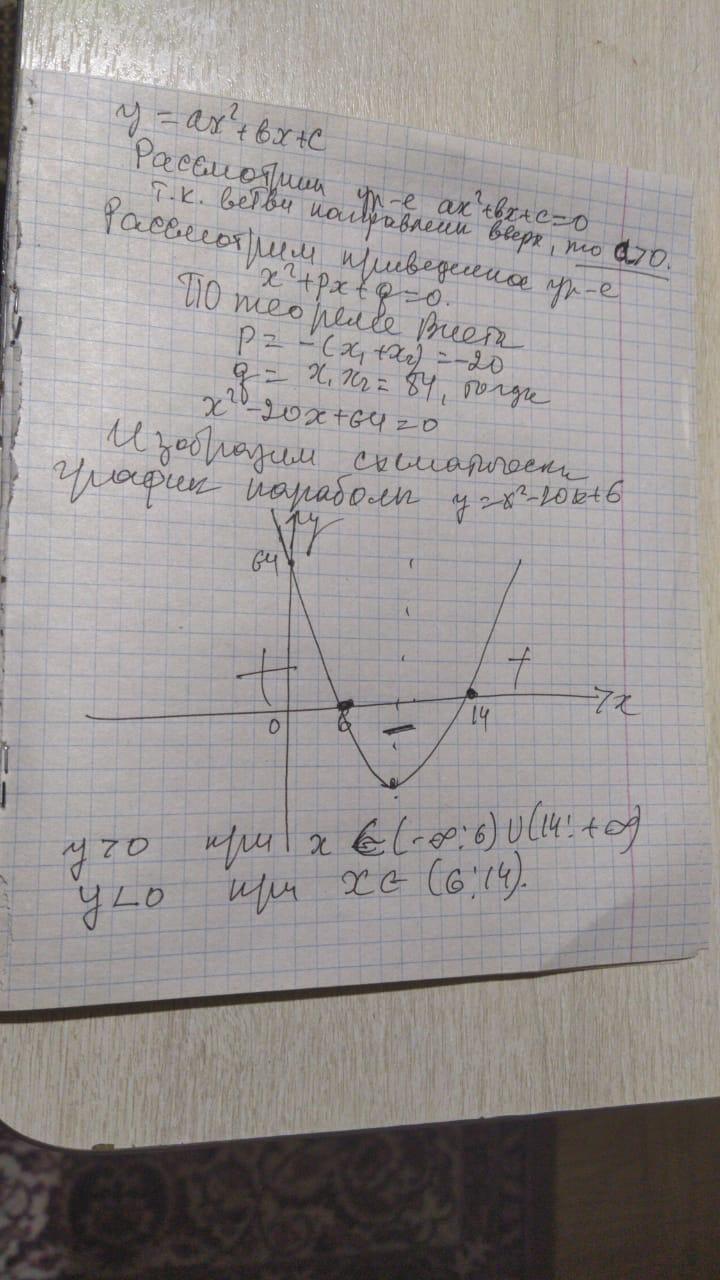 y = ax²+bx+c
Рассмотрим ур-е ax²+bx+c=0
т.к. ветви направлены вверх, то a>0.
Рассмотрим приведенное ур-е
x²+px+q=0.
По теореме Виета
p = -(x₁+x₂) = -20
q = x₁x₂ = 84, тогда
x²-20x+64=0
Изобразим схематически
график параболы y=x²-20x+6
y
64
+
+
0
6
14
x
-
y>0 при x ∈ (-∞;6)∪(14;+∞)
y<0 при x∈ (6;14).